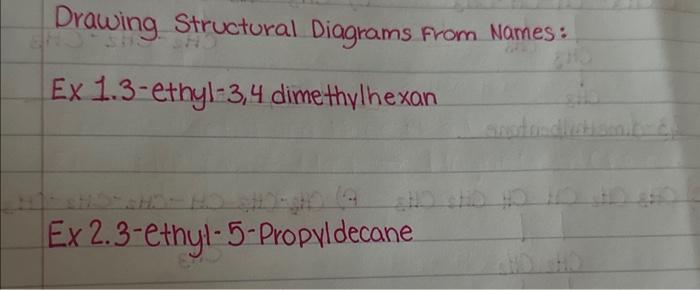 Drawing Structural Diagrams From Names:
Ex 1. 3-ethyl-3,4 dimethylhexan
Ex 2. 3-ethyl-5-Propyldecane